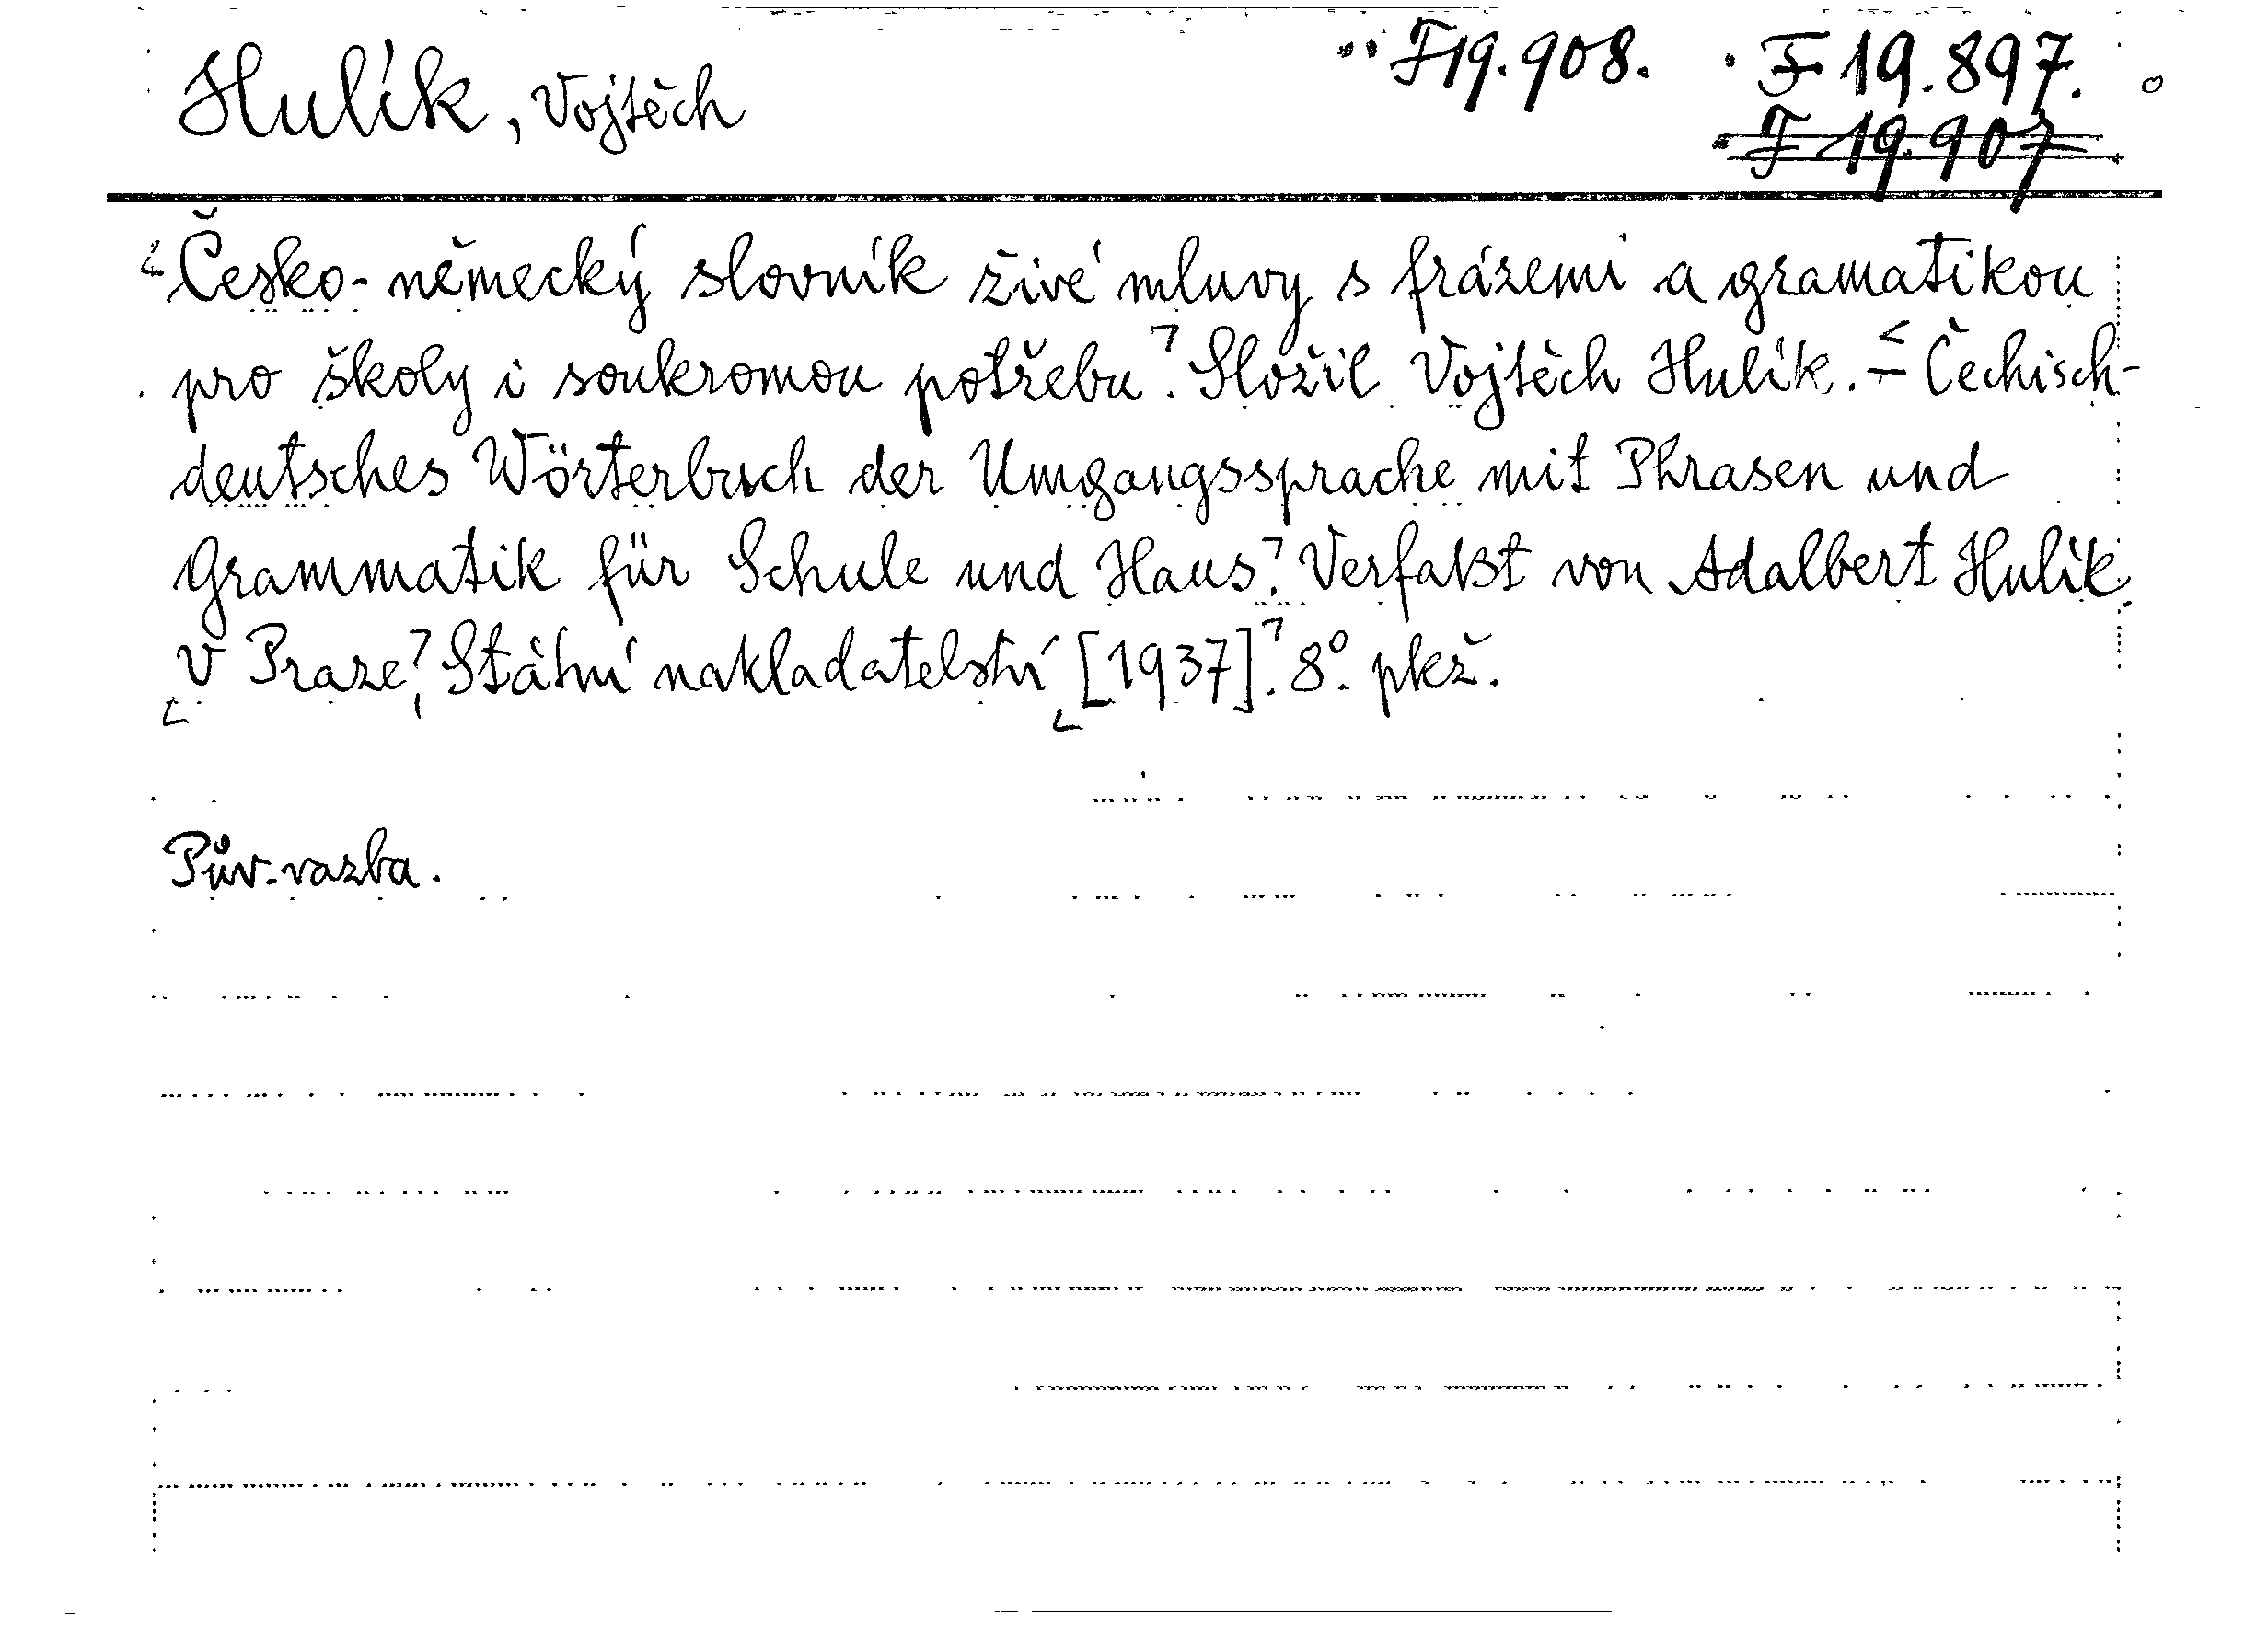 Hulík, Vojtěch
F 19.908. F 19.897.
F 19.907
Česko-německý slovník živé mluvy s frázemi a gramatikou
pro školy i soukromou potřebu. Složil Vojtěch Hulík. = Čechisch-
deutsches Wörterbuch der Umgangssprache mit Phrasen und
Grammatik für Schule und Haus. Verfaßt von Adalbert Hulík
V Praze, Státní nakladatelství [1937]. 8°. pkž.
Pův. vazba.